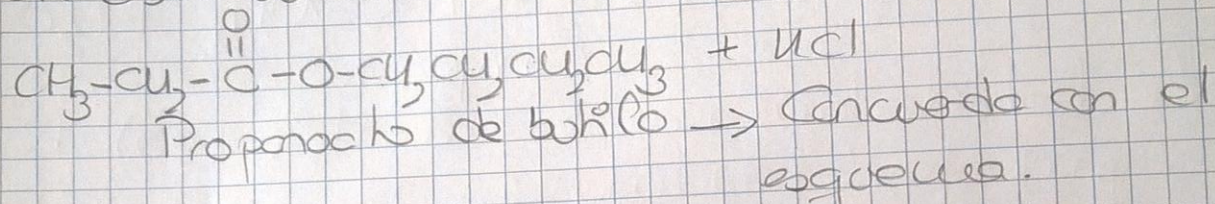 O
||
CH₃-CH₂-C-O-CH₂CH₂CH₂CH₃ + HCl
Propanoato de butilo → Concuerda con el
esquema.